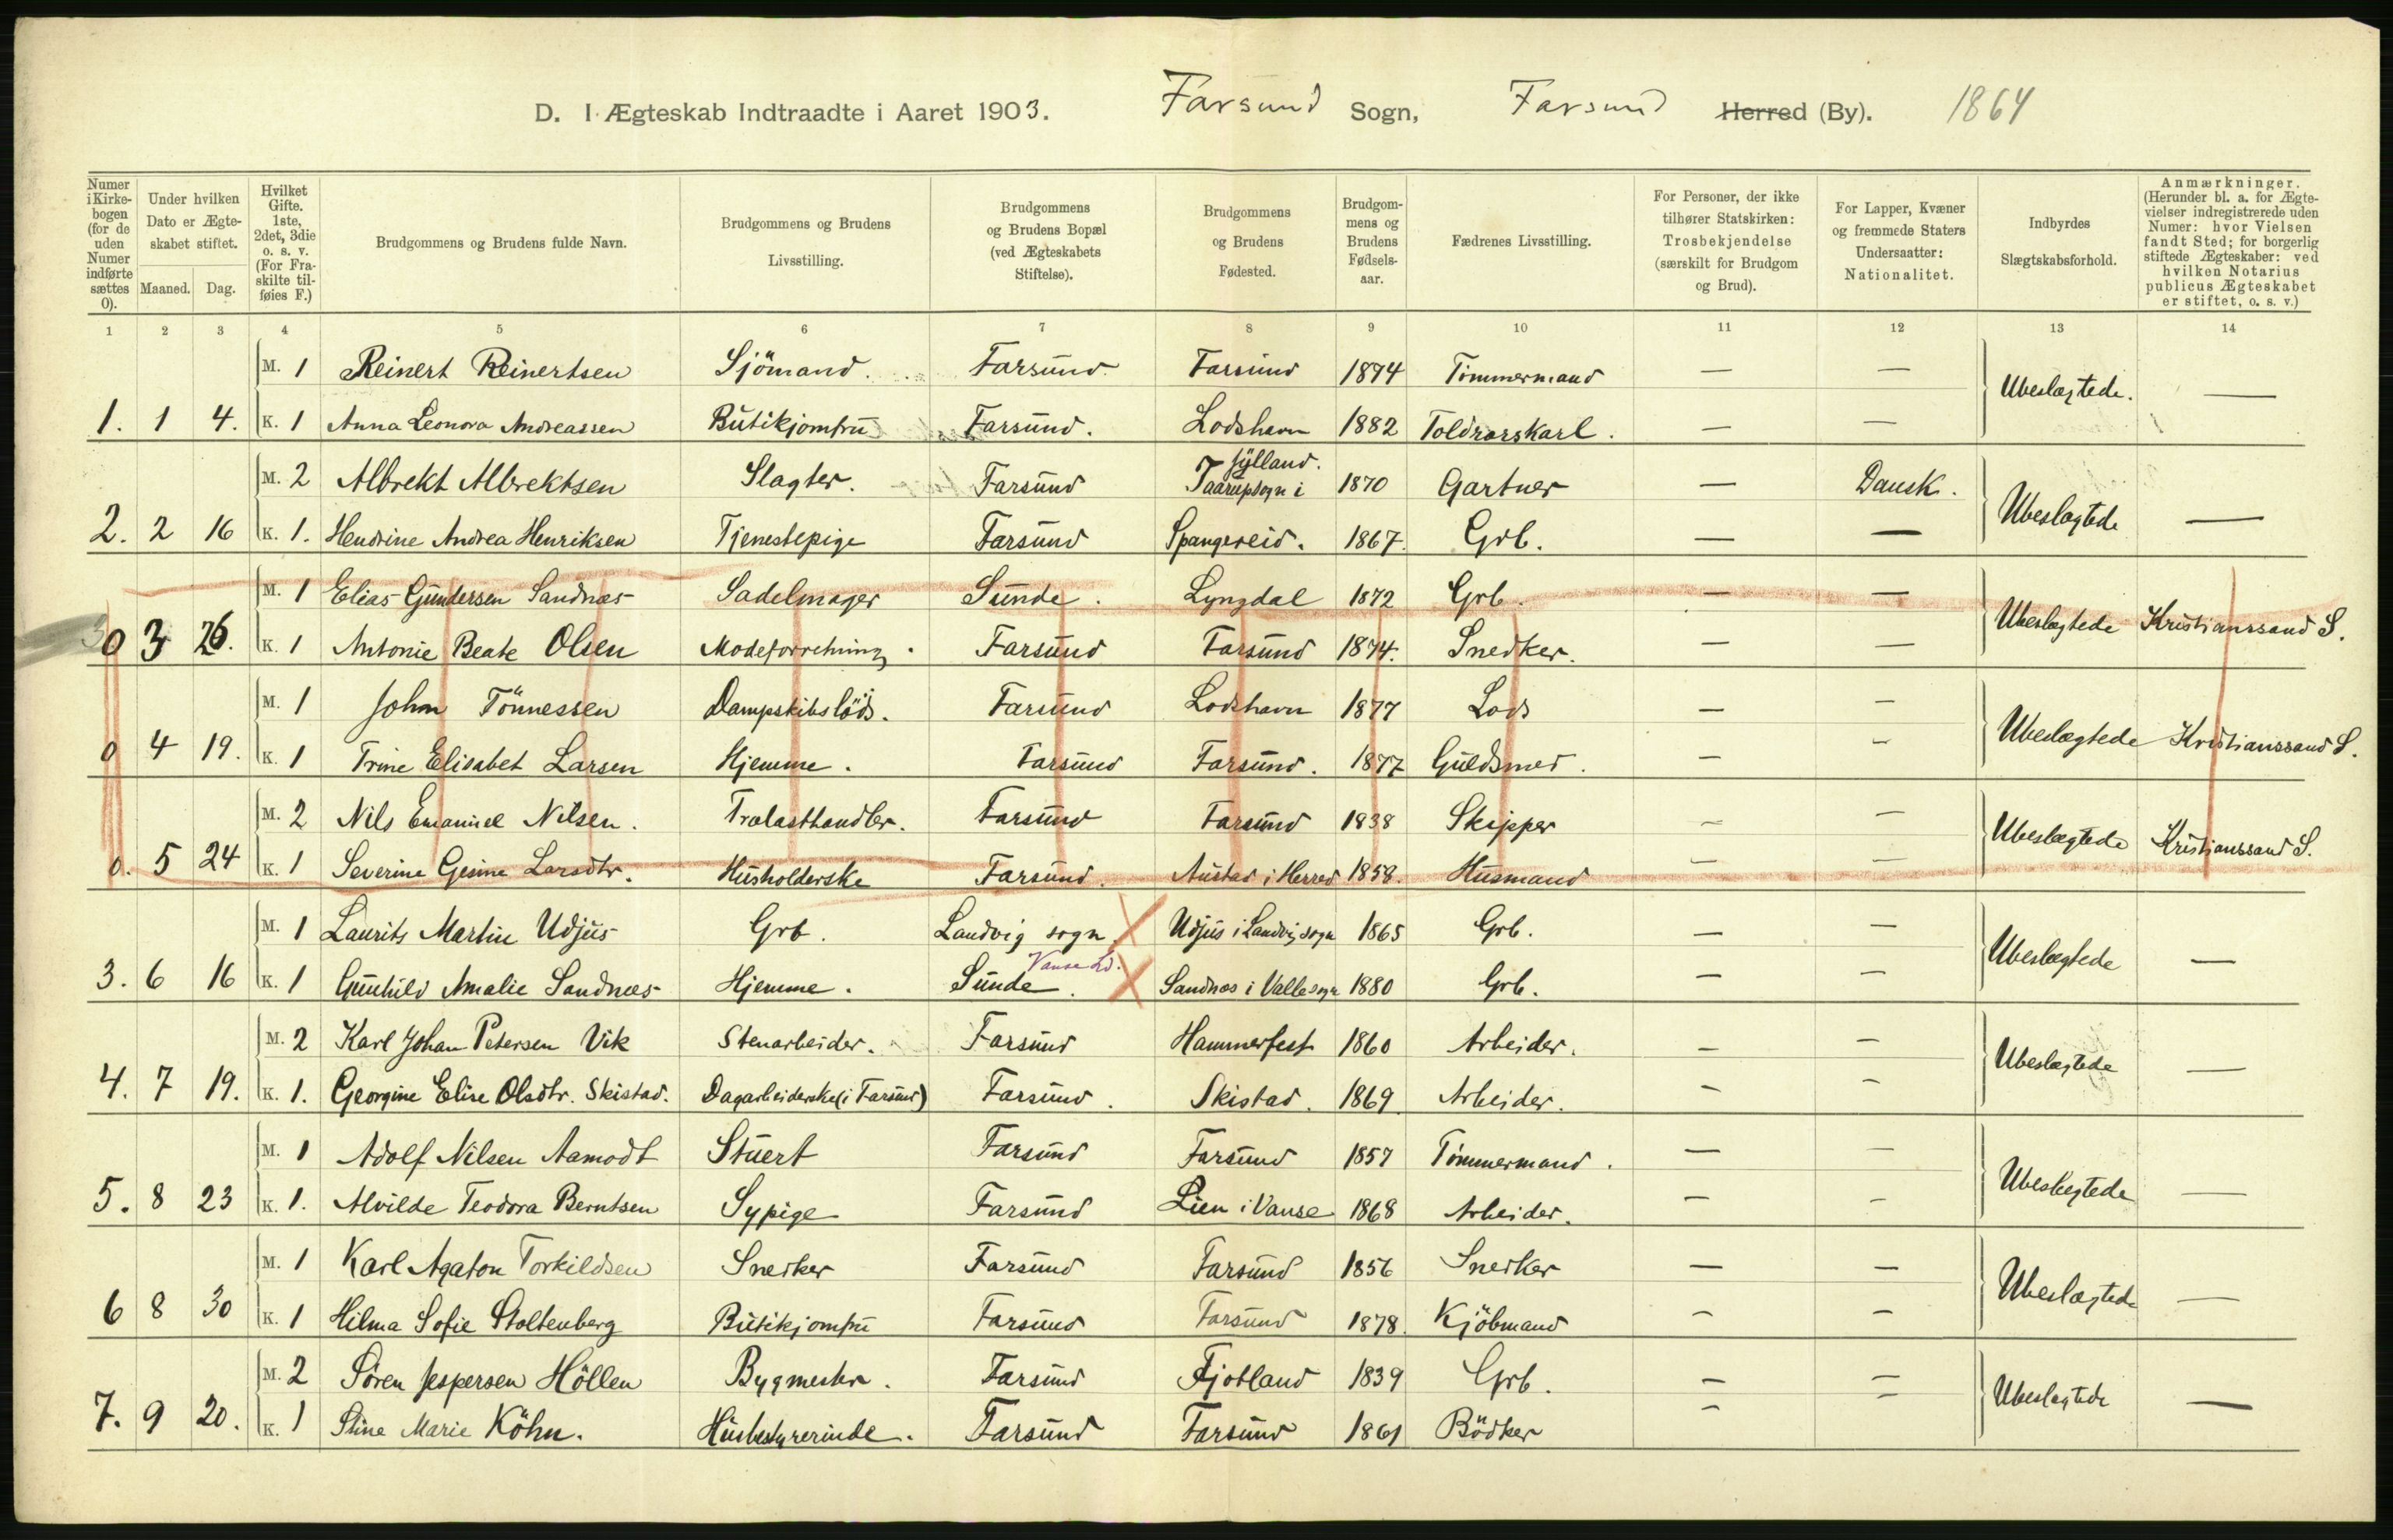 D. I Ægteskab Indtraadte i Aaret 1903. Farsund Sogn, Farsund Herred (By). 1864
Numer i Kirkebogen (for de uden Numer indførte sættes 0).
Under hvilken Dato er Ægteskabet stiftet.
Maaned. Dag.
Hvilket Gifte. 1ste, 2det, 3die o. s. v. (For Fraskilte tilføies F.)
Brudgommens og Brudens fulde Navn.
Brudgommens og Brudens Livsstilling.
Brudgommens og Brudens Bopæl (ved Ægteskabets Stiftelse).
Brudgommens og Brudens Fødested.
Brudgommens og Brudens Fødselsaar.
Fædrenes Livsstilling.
For Personer, der ikke tilhører Statskirken: Trosbekjendelse (særskilt for Brudgom og Brud).
For Lapper, Kvæner og fremmede Staters Undersaatter: Nationalitet.
Indbyrdes Slægtskabsforhold.
Anmærkninger. (Herunder bl. a. for Ægtevielser indregistrerede uden Numer: hvor Vielsen fandt Sted; for borgerlig stiftede Ægteskaber: ved hvilken Notarius publicus Ægteskabet er stiftet, o. s. v.)
1 2 3 4 5 6 7 8 9 10 11 12 13 14
M. 1 Reinert Reinertsen Sjömand. Farsund Farsund 1874 Tömmermand — — Ubeslægtede. —
1. 1 4. K. 1 Anna Leonora Andreassen Butikjomfru Farsund. Lodshavn 1882 Toldrorskarl. — —
M. 2 Albrekt Albrektsen Slagter. Farsund Taarupsogn i Jylland. 1870 Gartner — Dansk. Ubeslægtede —
2. 2 16 K. 1. Hendrine Andrea Henriksen Tjenestepige Farsund Spangereid. 1867. Grb. — —
M. 1 Elias Gundersen Sandnæs Sadelmager Sunde. Lyngdal 1872 Grb. — — Ubeslægtede Kristianssand S.
0 3 26. K. 1 Antonie Beate Olsen Modeforretning. Farsund Farsund 1874. Snedker. — —
M. 1 John Tönnessen Dampskibslods. Farsund Lodshavn 1877 Lods — — Ubeslægtede Kristianssand S.
0 4 19. K. 1 Trine Elisabet Larsen Hjemme. Farsund Farsund. 1877 Guldsmed. — —
M. 2 Nils Emanuel Nilsen. Trælasthandler. Farsund Farsund 1838 Skipper — — Ubeslægtede Kristianssand S.
0. 5 24 K. 1 Severine Gesine Larsdtr. Husholderske Farsund. Austad i Herred 1858. Husmand — —
M. 1 Laurits Martin Udjus Grb. Landvig sogn Udjus i Landvigsogn 1865 Grb. — — Ubeslægtede —
3. 6 16 K. 1 Gunhild Amalie Sandnæs Hjemme. Sunde. Vanse Ld. Sandnæs i Vallesogn 1880 Grb. — —
M. 2 Karl Johan Petersen Vik Stenarbeider. Farsund Hammerfest 1860 Arbeider. — — Ubeslægtede —
4. 7 19. K. 1. Georgine Elise Olsdtr. Skistad. Dagarbeiderske (i Farsund) Farsund. Skistad. 1869. Arbeider. — —
M. 1 Adolf Nilsen Aamodt Stuert Farsund Farsund 1857 Tömmermand. — — Ubeslægtede —
5. 8 23 K. 1. Alvilde Teodora Berntsen Sypige Farsund Lien i Vanse 1868 Arbeider. — —
M. 1 Karl Agaton Torkildsen Snedker Farsund Farsund 1856 Snedker — — Ubeslægtede —
6 8 30 K. 1 Hilma Sofie Stoltenberg Butikjomfru Farsund Farsund 1878. Kjöbmand — —
M. 2 Sören Jespersen Höllen Bygmester. Farsund Fjotland 1839 Grb. — — Ubeslægtede —
7. 9 20. K. 1 Stine Marie Köhn. Husbestyrerinde. Farsund Farsund 1861 Bödker — —